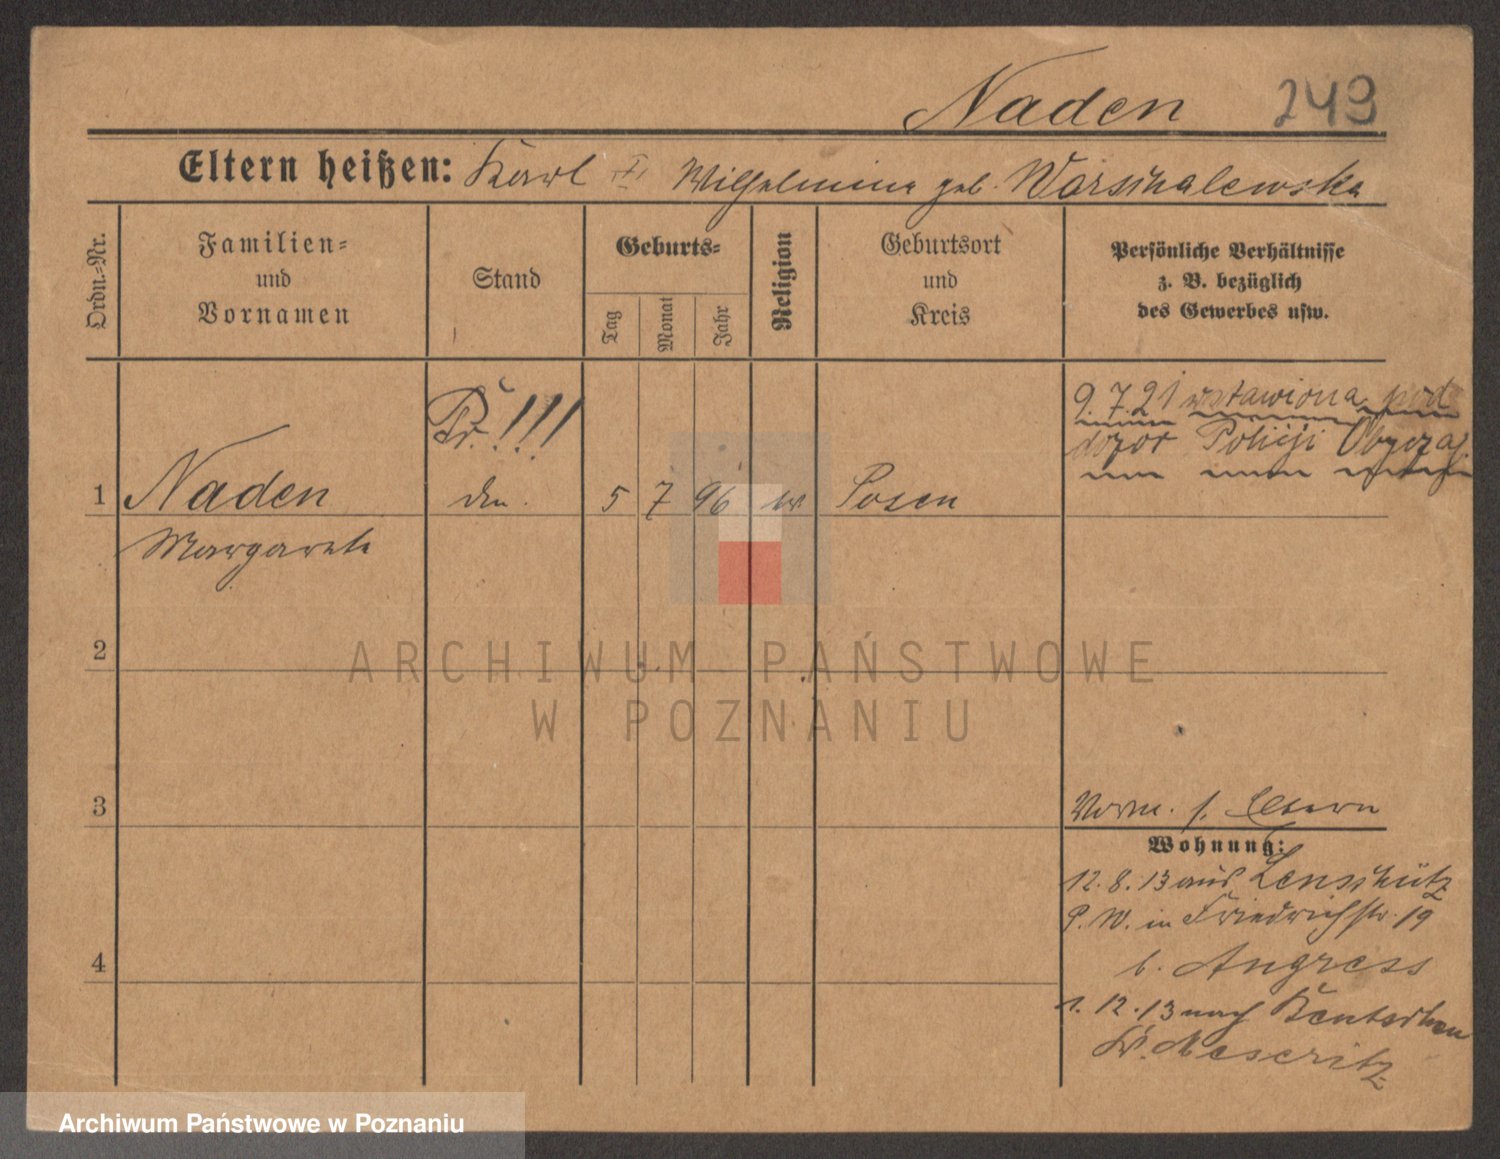 Naden 249
Eltern heißen: Karl Wilhelmine geb. Warschalewska
Ordn.-Nr.
Familien-
und
Vornamen
Stand
Geburts-
Tag
Monat
Jahr
Religion
Geburtsort
und
Kreis
Persönliche Verhältnisse
z. B. bezüglich
des Gewerbes usw.
Pr. !!!
9.7.21 wstawiona pod
dozor Policji Obyczaj.
1 Naden 5 7 96 Posen
Margarete
2
3
4
s. Eltern
Wohnung:
12.8.13 aus Lenschütz
P. W. in Friedrichstr. 19
b. Angress
1.12.13 nach Bentschen
Kr. Meseritz
ARCHIWUM PAŃSTWOWE
W POZNANIU
Archiwum Państwowe w Poznaniu